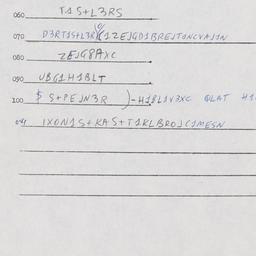 060 T1S+L3RS
070 D3RT1S+L3R 1ZEJGD1BREJTONCVAJ1N
080 ZEJG8AXC
090 UBG1H1BLT
100 $ S+PEJN3R )-H1BL1V3XC QLAT H1
041 1XON1S+KAS+T1KLBROJC1MESN